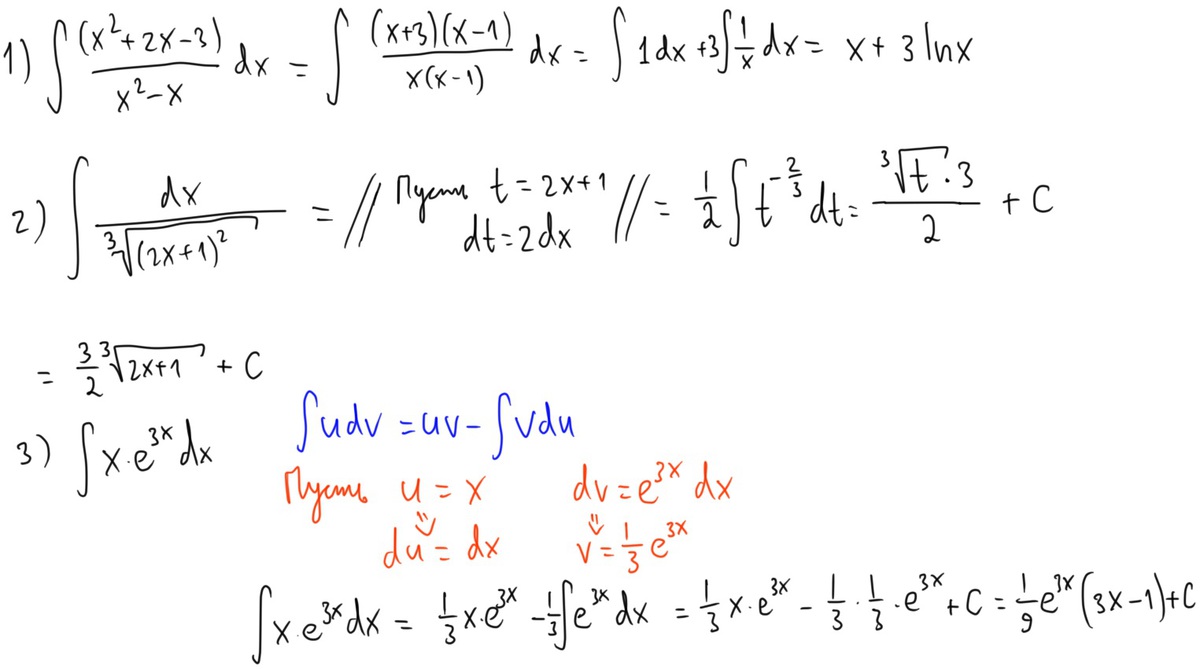 1) ∫ (x²+2x-3)/(x²-x) dx = ∫ (x+3)(x-1)/(x(x-1)) dx = ∫ 1dx + 3∫ 1/x dx = x + 3 lnx
2) ∫ dx/∛((2x+1)²) = // Пусть t = 2x+1 dt = 2dx // = 1/2 ∫ t^(-2/3) dt = (∛t · 3)/2 + C
= 3/2 ∛(2x+1) + C
3) ∫ x·e^(3x) dx
∫udv = uv - ∫vdu
Пусть u = x dv = e^(3x) dx
⇓ ⇓
du = dx v = 1/3 e^(3x)
∫ x·e^(3x) dx = 1/3 x·e^(3x) - 1/3 ∫ e^(3x) dx = 1/3 x·e^(3x) - 1/3 · 1/3 · e^(3x) + C = 1/9 e^(3x) (3x-1) + C